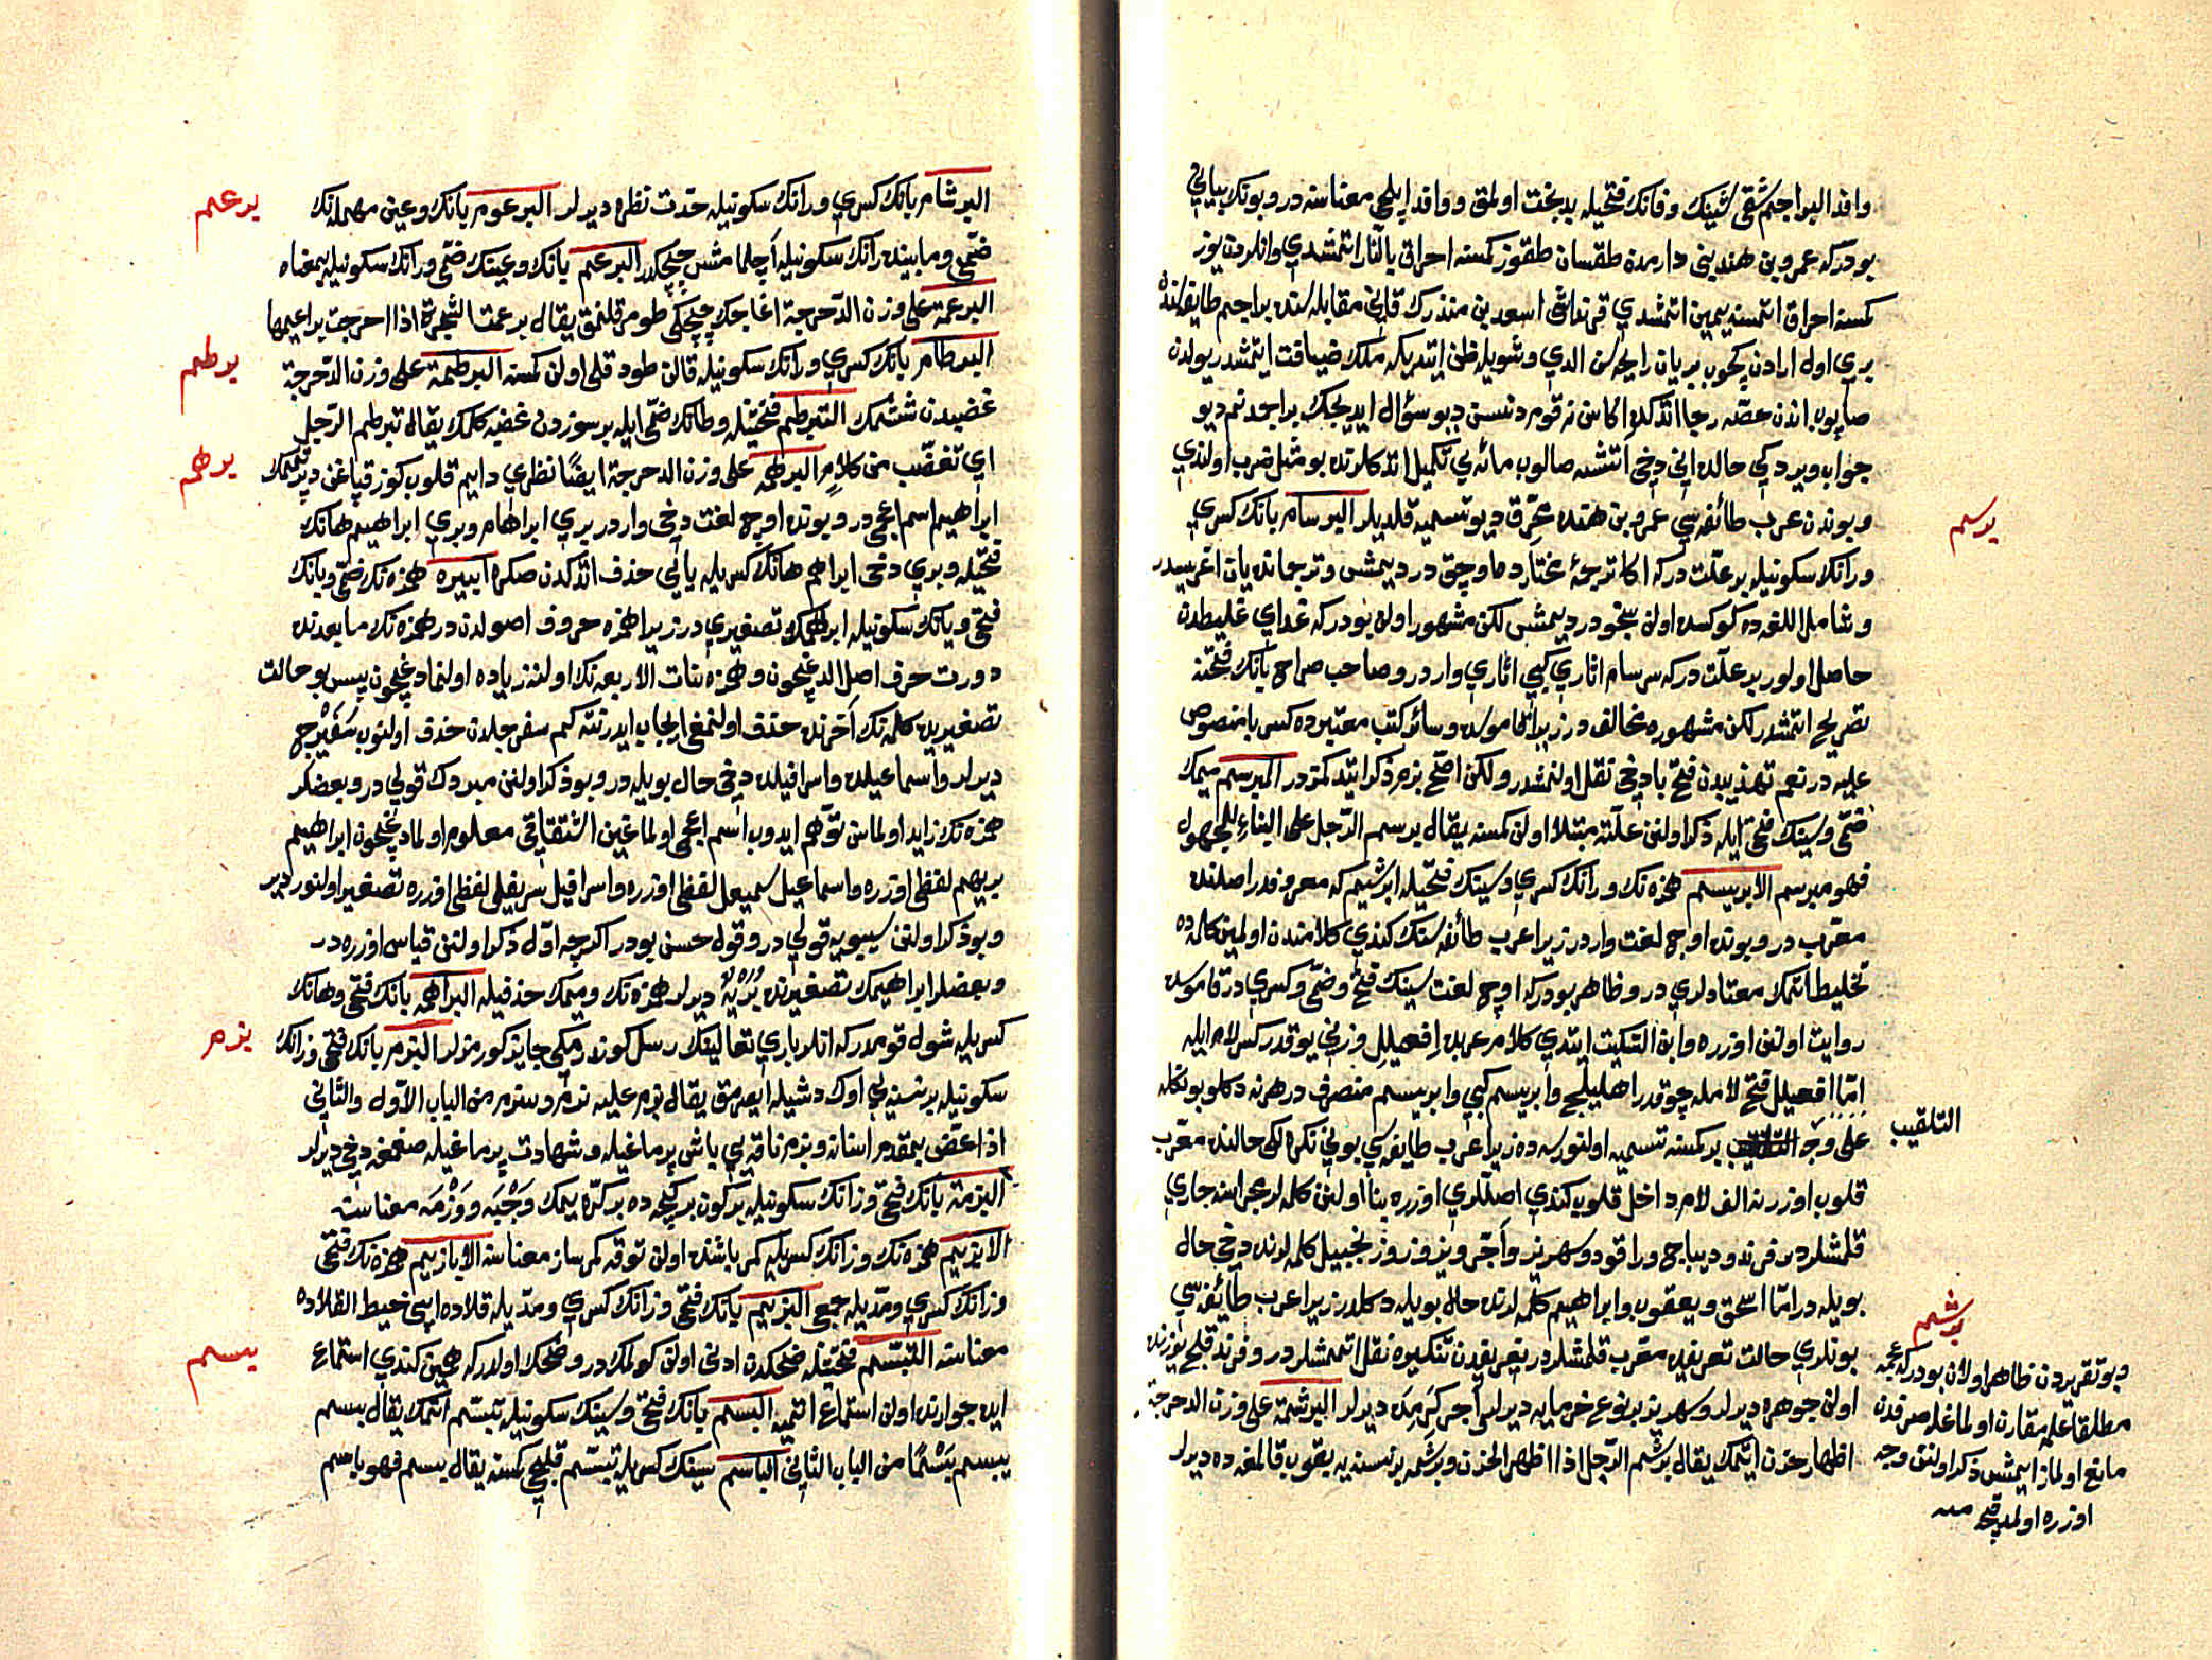 وافد البراجم شقی شینك و فانك فتحیله بدبخت اولمق و وافد ایلچی معناسنه در و بونك بیانی
بودركه عمرو بن هند بنی دارمدن طقسان طقوز كمسنه احراق بالنار اتمشدی وانلردن یوز
كمسنه احراق اتمسنه یمین اتمشدی قرنداشی اسعد بن منذرك قتلی مقابله سنده براجم طایفه سندن
بری اول ارادن كچوب بریان رایحه سن الدی و شویله ظن ایتدیكه ملك ضیافت ایتمشدر یولدن
صاپوب اندن حصه رجا اتدكده اكا سن نه قومدنسن دیو سؤال ایدیجك براجمدنم دیو
جواب ویردكی حالده انی دخی اتشه صالوب مائه یی تكمیل اتدكلرنده بو مثل ضرب اولندی
و بوندن عرب طائفه سی عمرو بن هنده محرق دیو تسمیه قلدیلر البرسام بانك كسری
ورانك سكونیله بر علت دركه اكا ترجمهٔ مختارده ماوچق در دیمش و ترجمانده یان اغریسیدر
و شامل اللغه ده كوكسده اولن سنجو در دیمش لكن مشهور اولن بودركه غدای غلیظدن
حاصل اولور بر علت دركه سرسام اثاری كبی اثاری واردر و صاحب صراح بانك فتحنه
تصریح اتمشدر لكن مشهوره مخالف در زیرا قاموسده و سائر كتب معتبره ده كسر با منصوص
علیه در نعم تهذیبدن فتح با دخی نقل اولنمشدر ولكن اصح بزم ذكر ایتدكمزدر المبرسم میمك
ضمی و سینك فتحی ایله ذكر اولنن علته مبتلا اولن كمسنه یقال برسم الرجل علی البناء للمجهول
فهو مبرسم الابریسم همزه نك ورانك كسری و سینك فتحیله ابرشیم كه معروفدر اصلنده
معرب در و بونده اوچ لغت واردر زیرا عرب طائفه سنك كندی كلامندن اولمین كلمه ده
تخلیط اتمك معتادلری در و ظاهر بودركه اوچ لغت سینك فتح و ضمی و كسری در قاموسده
روایت اولنن اوزره و ابن السكیت ایتدی كلام عربده افعیلل وزنی یوقدر كسر لام ایله
اما افعیلل فتح لامله چوقدر اهلیلج و ابریسم كبی و ابریسم منصرف در هر نه دكلو بونكله
علی وجه التلقیب بر كمسنه تسمیه اولنورسه ده زیرا عرب طایفه سی بونی نكره لكی حالنده معرب
قلوب اوزرنه الف لام داخل قلوب كندی اصللری اوزره بنا اولنن كلمه لر مجراسنه جاری
قلمشلردر فرند و دیباج و راقود و سهریز و آجر و نیروز و زنجبیل كلمه لرنده دخی حال
بویله در اما اسحق و یعقوب و ابراهیم كلمه لرنده حال بویله دكلدر زیرا عرب طائفه سی
بونلری حالت تعریفده معرب قلمشلردر تعریفدن تنكیره نقل اتمشلردر و فرند قلج یوزنده
اولن جوهره دیرلر و سهریز بر نوع خرمایه دیرلر آجر كرمیده دیرلر البرشمة علی وزن الدحرجة
اظهار حزن ایتمك یقال برشم الرجل اذا اظهر الحزن و برشمه بر نسنه یه یقوب قالمغه ده دیرلر
برسم
التلقیب
برشم
و بو تقریردن ظاهر اولان بودركه عجمه
مطلقا علمه مقارن اولماغله صرفدن
مانع اولماز ایمش ذكر اولنن وجه
اوزره اولمدیقجه منه
البرشام بانك كسری و رانك سكونیله حدت نظره دیرلر البرعوم بانك و عین مهمله نك
ضمی و مابینده رانك سكونیله آچلمامش چچكدر البرعم بانك و عینك ضمی و رانك سكونیله بمعناه
البرعمة علی وزن الدحرجة اغاجك چچكی طومرقلنمق یقال برعمت الشجرة اذا اخرجت براعیمها
البرطام بانك كسری و رانك سكونیله قالن طودقلی اولن كمسنه البرطمة علی وزن الدحرجة
غضبدن شتمك التبرطم فتحتینله و طانك ضمی ایله بر سوزدن غضبه كلمك یقال تبرطم الرجل
ای تغضب من كلام البرهمة علی وزن الدحرجة ایضا نظری دایم قلوب كوز قپاغن دپرتمك
ابراهیم اسم اعجمی در و بونده اوچ لغت دخی واردر بری ابراهام و بری ابراهیم هانك
فتحیله و بری دخی ابراهم هانك كسریله یایی حذف اتدكدن صكره ابیره همزه نك ضمی و بانك
فتحی و یانك سكونیله ابراهیمك تصغیری در زیرا همزه حروف اصولدن در همزه نك مابعدنده
دورت حرف اصل الدغیچون و همزه بنات الاربعه نك اولنه زیاده اولنمادغیچون پس بو حالت
تصغیرده كلمه نك آخرنده حذف اولنمغی ایجاب ایدر نته كم سفرجلدن حذف اولنوب سفیرج
دیرلر و اسماعیلده و اسرافیلده دخی حال بویله در و بو ذكر اولنن مبردك قولی در و بعضلر
همزه نك زاید اولماسن توهم ایدوب اسم اعجمی اولماغین اشتقاقی معلوم اولمادغیچون ابراهیم
بریهیم لفظی اوزره و اسماعیل سمیعل لفظی اوزره و اسرافیل سریفل لفظی اوزره تصغیر اولنور دیر
و بو ذكر اولنن سیبویه قولی در و قول حسن بودر اكرچه اول ذكر اولنن قیاس اوزره در
و بعضلر ابراهیمك تصغیرنده بریه دیرلر همزه نك و میمك حذفیله البراهمة بانك فتحی و هانك
كسریله شول قومدركه انلر باری تعالینك رسل كوندرمكی جایز كورمزلر البزم بانك فتحی و زانك
سكونیله بر نسنه یی اوك دشیله ایصرمق یقال بزم علیه بزم و یبزم من الباب الاول والثانی
اذا عض بمقدم اسنانه و بزم ناقه یی باش پرماغیله و شهادت پرماغیله صغمغه دخی دیرلر
البزمة بانك فتحی و زانك سكونیله بر كون بر كیجه ده بر كره یمك وجبه و وزمه معناسنه
الابزیم همزه نك و زانك كسریله كمر باشنده اولن توقه كمرساز معناسنه الابازیم همزه نك فتحی
وزانك كسری و مدیله جمعی البزیم بانك فتحی و زانك كسری و مدیله قلاده ایپی خیط القلاده
معناسنه التبسم فتحتینله ضحكدن ادنی اولن كولمك در و ضحك اولدركه همین كندی استماع
ایده جوارنده اولن استماع اتمیه البسم بانك فتحی و سینك سكونیله تبسم اتمك یقال بسم
یبسم بسما من الباب الثانی الباسم سینك كسریله تبسم قلیجی كمسنه یقال بسم فهو باسم
برعم
برطم
برهم
بزم
بسم